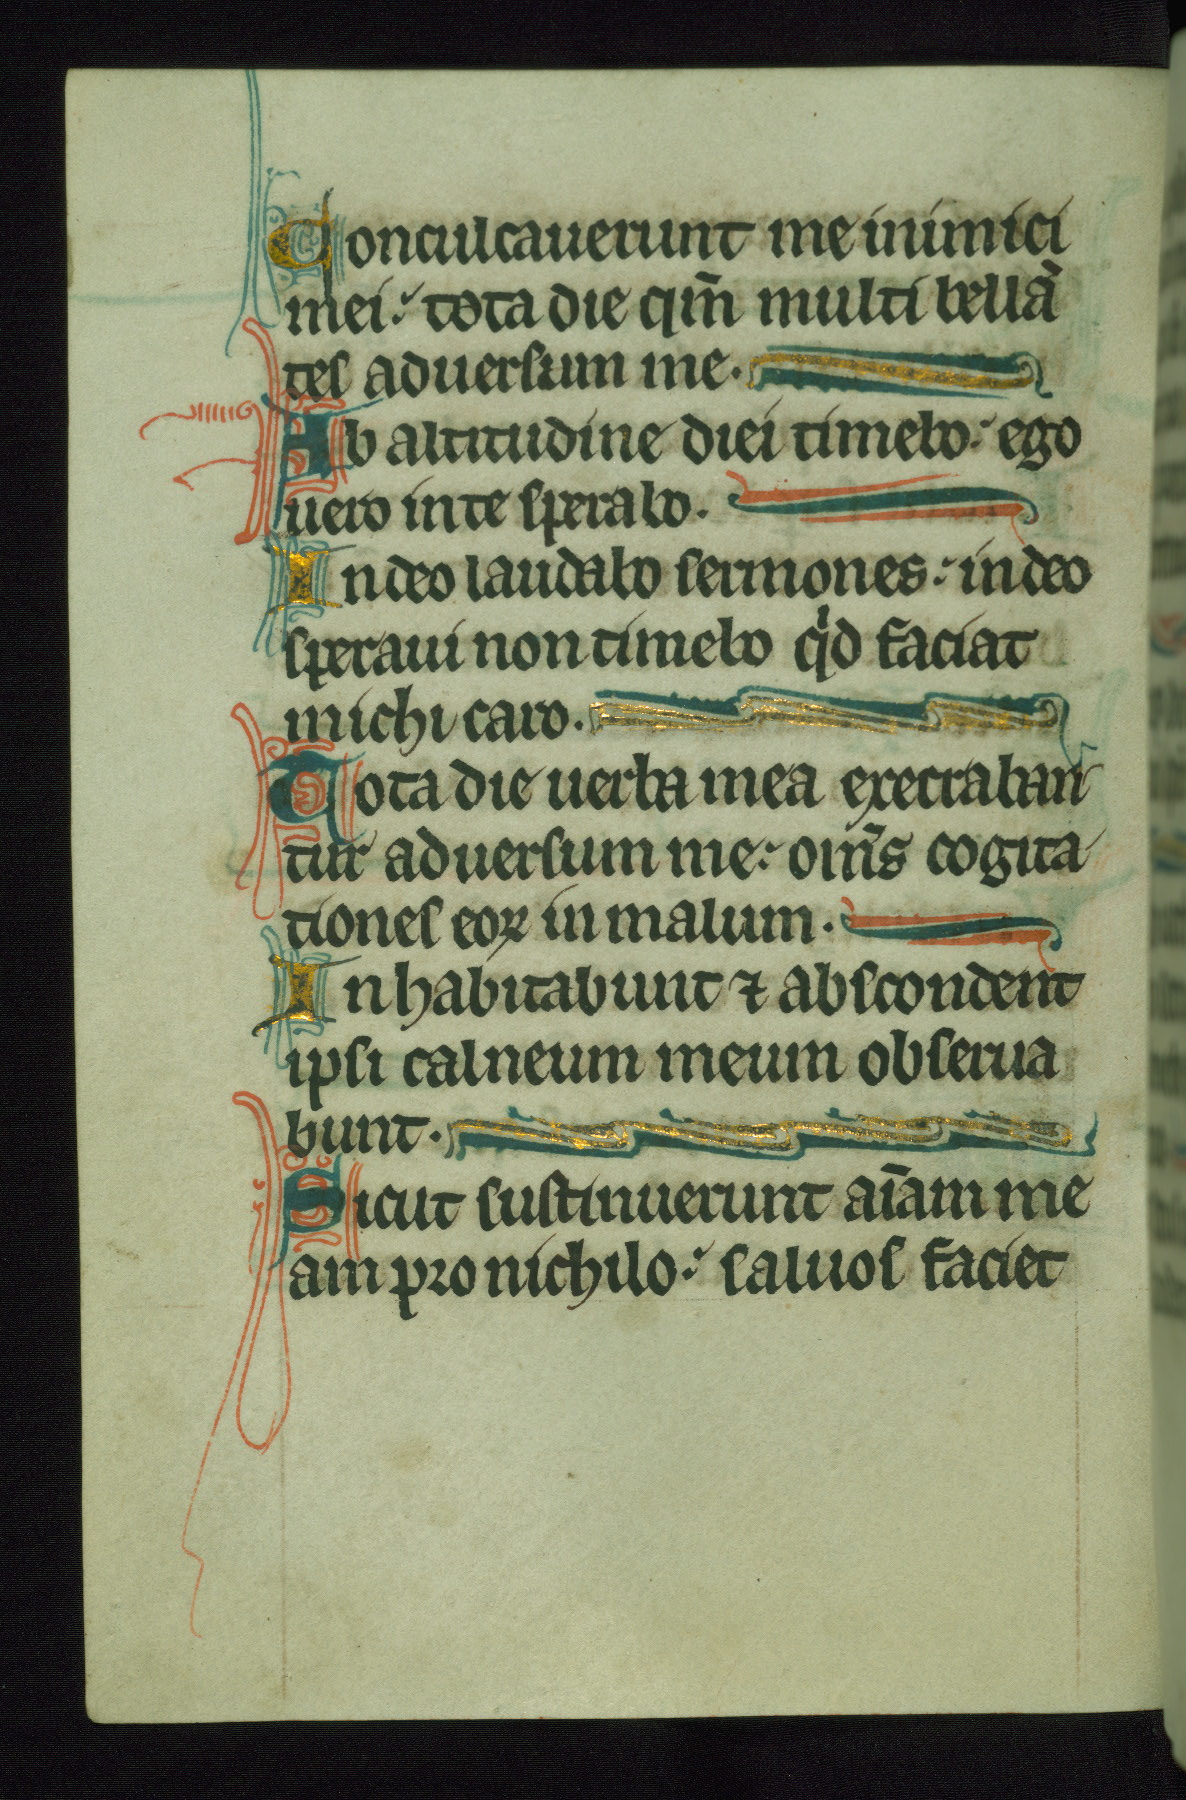 Conculcauerunt me inimici
mei: tota die qm̃ multi bellã
tes aduersum me.
Ab altitudine diei timebo: ego
uero in te sperabo.
In deo laudabo sermones: in deo
speraui non timebo qͥd faciat
michi caro.
Tota die uerba mea execraban
tur aduersum me: om̃s cogita
tiones eoꝝ in malum.
Inhabitabunt ⁊ abscondent
ipsi calneum meum obserua
bunt.
Sicut sustinuerunt aı̃am me
am pro nichilo: saluos faciet